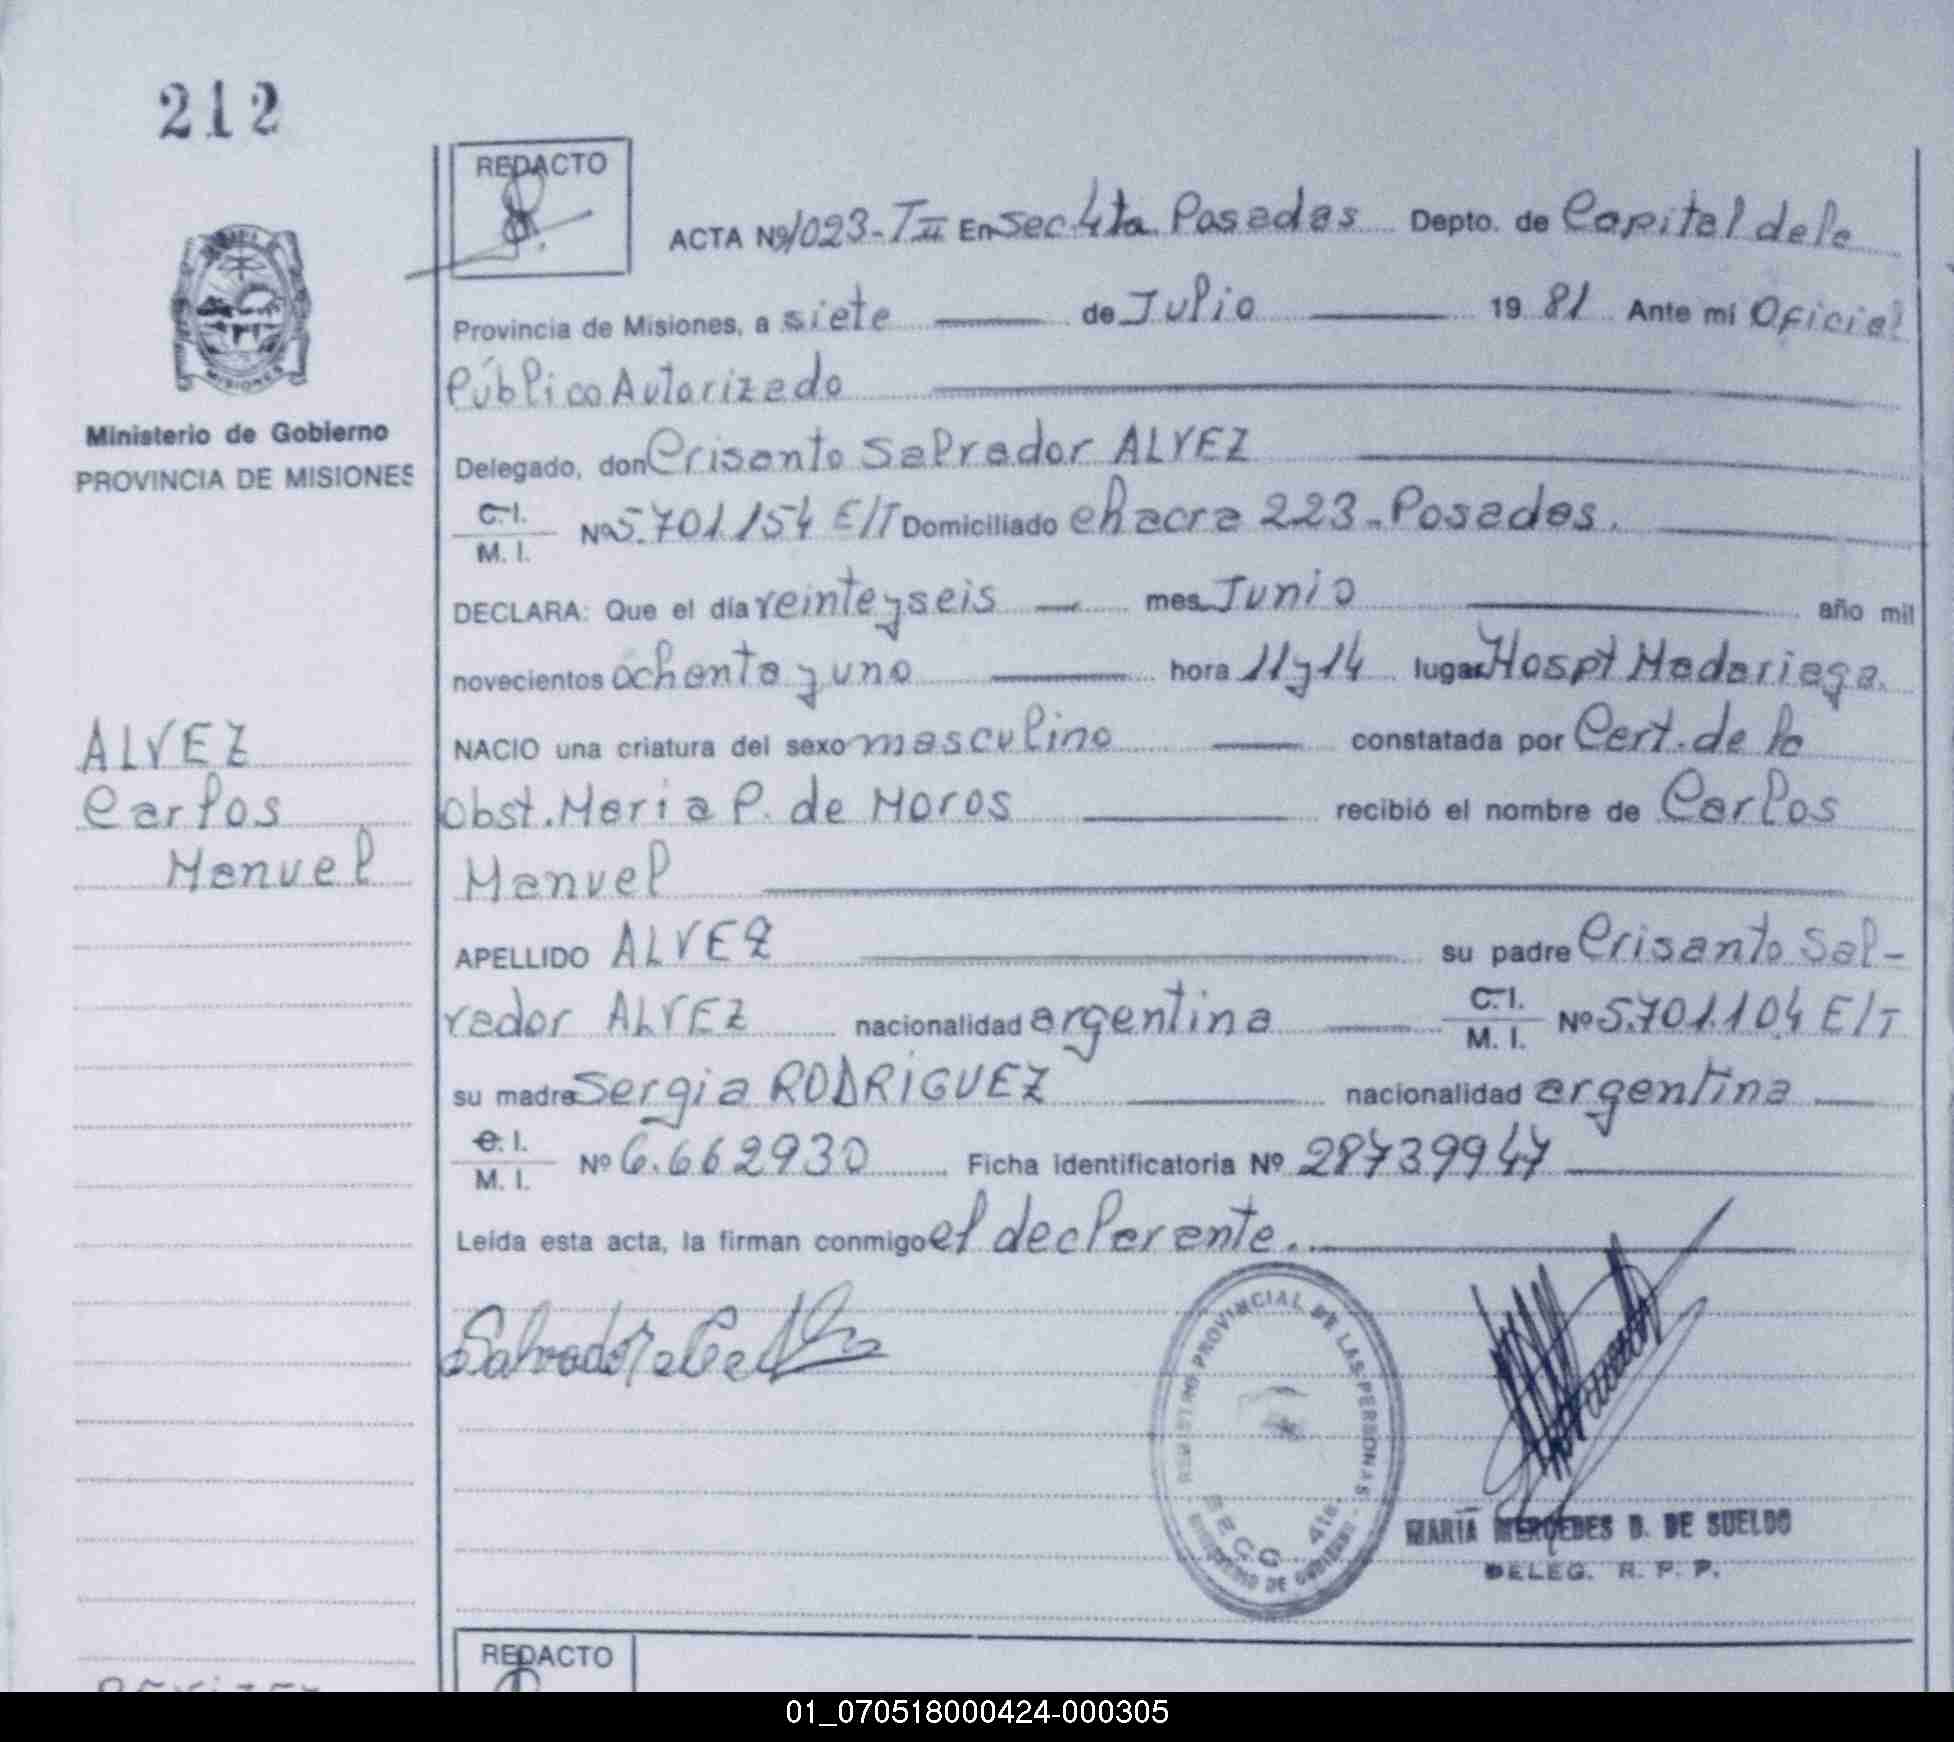 212
REDACTO
ACTA Nº 1023-TII En Sec 4ta Posadas Depto. de Capital de la
Provincia de Misiones, a siete de Julio 1981 Ante mí Oficial
Público Autorizado
Ministerio de Gobierno
PROVINCIA DE MISIONES
Delegado, don Crisanto Salvador ALVEZ
C.I.
M. I. Nº 5.701.154 E/T Domiciliado chacra 223-Posadas.
DECLARA: Que el día veinte y seis mes Junio año mil
novecientos ochenta y uno hora 11 y 14 lugar Hospt Madariaga.
NACIO una criatura del sexo masculino constatada por Cert. de la
Obst. Maria P. de Moros recibió el nombre de Carlos
Manuel
ALVEZ
Carlos
Manuel
APELLIDO ALVEZ su padre Crisanto Sal-
vador ALVEZ nacionalidad argentina C.I. M. I. Nº 5.701.104 E/T
su madre Sergia RODRIGUEZ nacionalidad argentina
C.I.
M. I. Nº 6.662930 Ficha identificatoria Nº 28739947
Leída esta acta, la firman conmigo el declarante.
REGISTRO PROVINCIAL DE LAS PERSONAS
SECC 4ta
MINISTERIO DE GOBIERNO
MARIA MERCEDES D. DE SUELDO
DELEG. R. P. P.
REDACTO
01_070518000424-000305